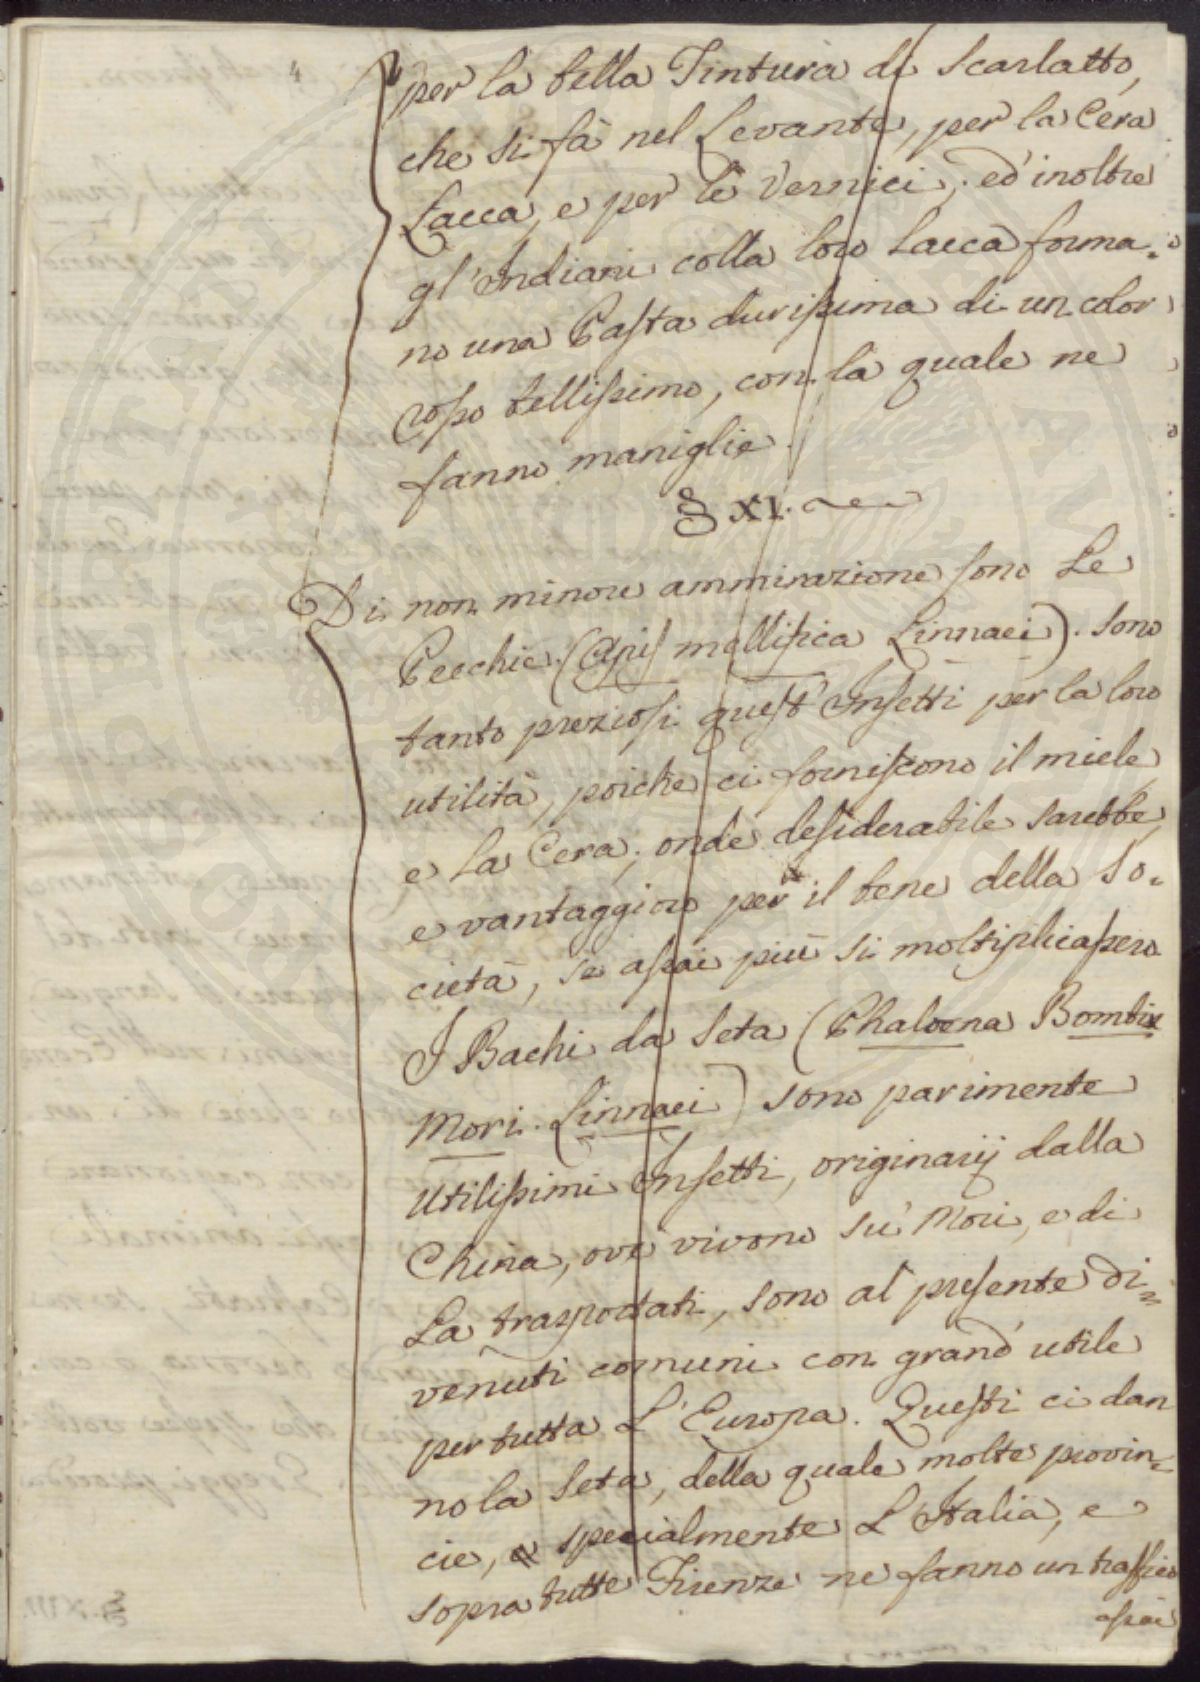 4
per la bella Tintura di Scarlatto,
che si fà nel Levante, per la Cera
Lacca, e per le Vernici; ed inoltre
gl'Indiani colla loro Lacca forma=
no una Pasta durissima di un color
rosso bellissimo, con la quale ne
fanno maniglie.
§ XI.
Di non minore ammirazione sono Le
Pecchie. (Apis mellifica Linnaei). Sono
tanto preziosi quest'Insetti per la loro
utilità, poiche ci forniscono il miele
e La Cera; onde desiderabile sarebbe,
e vantaggioso per il bene della So=
cietà, se assai più si moltiplicassero
I Bachi da Seta (Phaloena Bombix
Mori. Linnaei) sono parimente
Utilissimi Insetti, originarij dalla
China, ove vivono sù Mori, e di
La trasportati, sono al presente di=
venuti comuni con grand'utile
per tutta L'Europa. Questi ci dan
no la Seta, della quale molte provin=
cie, e specialmente L'Italia, e
sopra tutte Firenze ne fanno un traffico
assai